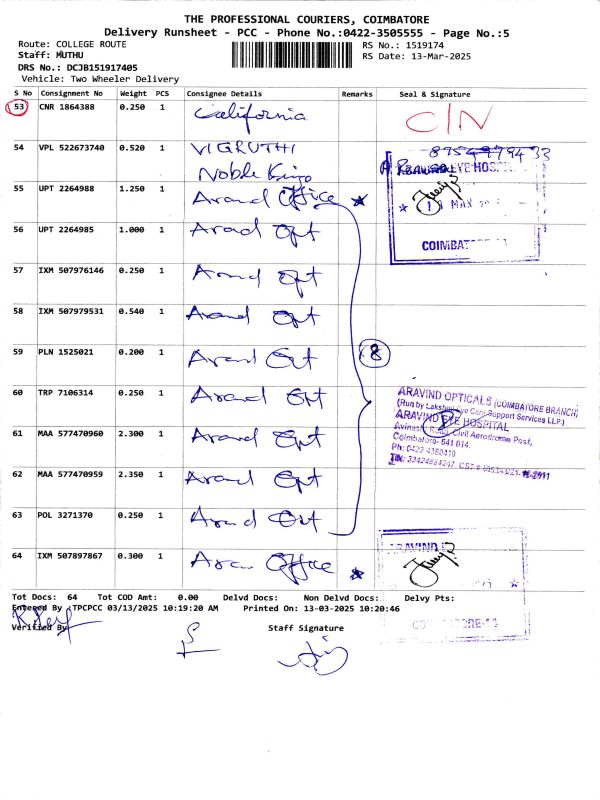 THE PROFESSIONAL COURIERS, COIMBATORE
Delivery Runsheet - PCC - Phone No.:0422-3505555 - Page No.:5
Route: COLLEGE ROUTE RS No.: 1519174
Staff: MUTHU RS Date: 13-Mar-2025
DRS No.: DCJB151917405
Vehicle: Two Wheeler Delivery
S No Consignment No Weight PCS Consignee Details Remarks Seal & Signature
53 CNR 1864388 0.250 1 California C/N
54 VPL 522673740 0.520 1 VIGRUTHI
Noble King
55 UPT 2264988 1.250 1 Aravnd Office
EYE HOSP
56 UPT 2264985 1.000 1 Aravd Opt
COIMBAT
57 IXM 507976146 0.250 1 Aravnd Opt
58 IXM 507979531 0.540 1 Aravnd Opt
59 PLN 1525021 0.200 1 Aravnd Opt 8
60 TRP 7106314 0.250 1 Aravnd Opt
ARAVIND OPTICALS (COIMBATORE BRANCH)
(Run by Lakshmi Eye Care Support Services LLP.)
61 MAA 577470960 2.300 1 Aravnd Opt
ARAVIND EYE HOSPITAL
Avinashi Road, Civil Aerodrome Post,
Coimbatore- 641 014.
Ph: 0422 4360418
62 MAA 577470959 2.350 1 Aravnd Opt
63 POL 3271370 0.250 1 Aravnd Opt
64 IXM 507897867 0.300 1 Aravnd Office
ARAVIND
Tot Docs: 64 Tot COD Amt: 0.00 Delvd Docs: Non Delvd Docs: Delvy Pts:
Entered By :TPCPCC 03/13/2025 10:19:20 AM Printed On: 13-03-2025 10:20:46
Verified By Staff Signature